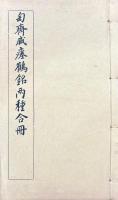 匋齋藏瘞鶴銘兩種合冊